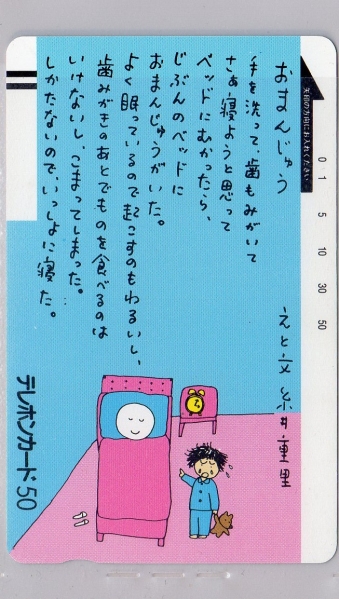 おまんじゅう
手を洗って、歯もみがいて
さあ寝ようと思って
ベッドにむかったら、
じぶんのベッドに
おまんじゅうがいた。
よく眠っているので起こすのもわるいし、
歯みがきのあとでものを食べるのは
いけないし、こまってしまった。
しかたないので、いっしょに寝た。
えと文 糸井重里
矢印の方向にお入れください
0 1 5 10 30 50
テレホンカード50